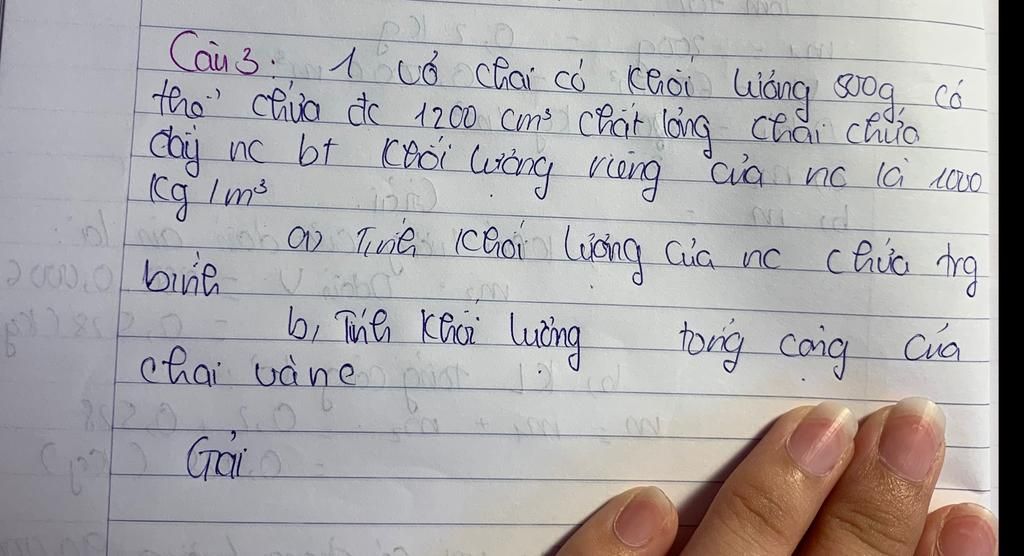 Câu 3: 1 vỏ chai có khối lượng 500g có
thể chứa đc 1200 cm³ chất lỏng chai chứa
đầy nc bt khối lượng riêng của nc là 1000
kg/m³
a) Tính khối lượng của nc chứa trg
bình
b, Tính khối lượng tổng cộng của
chai và nc
Giải